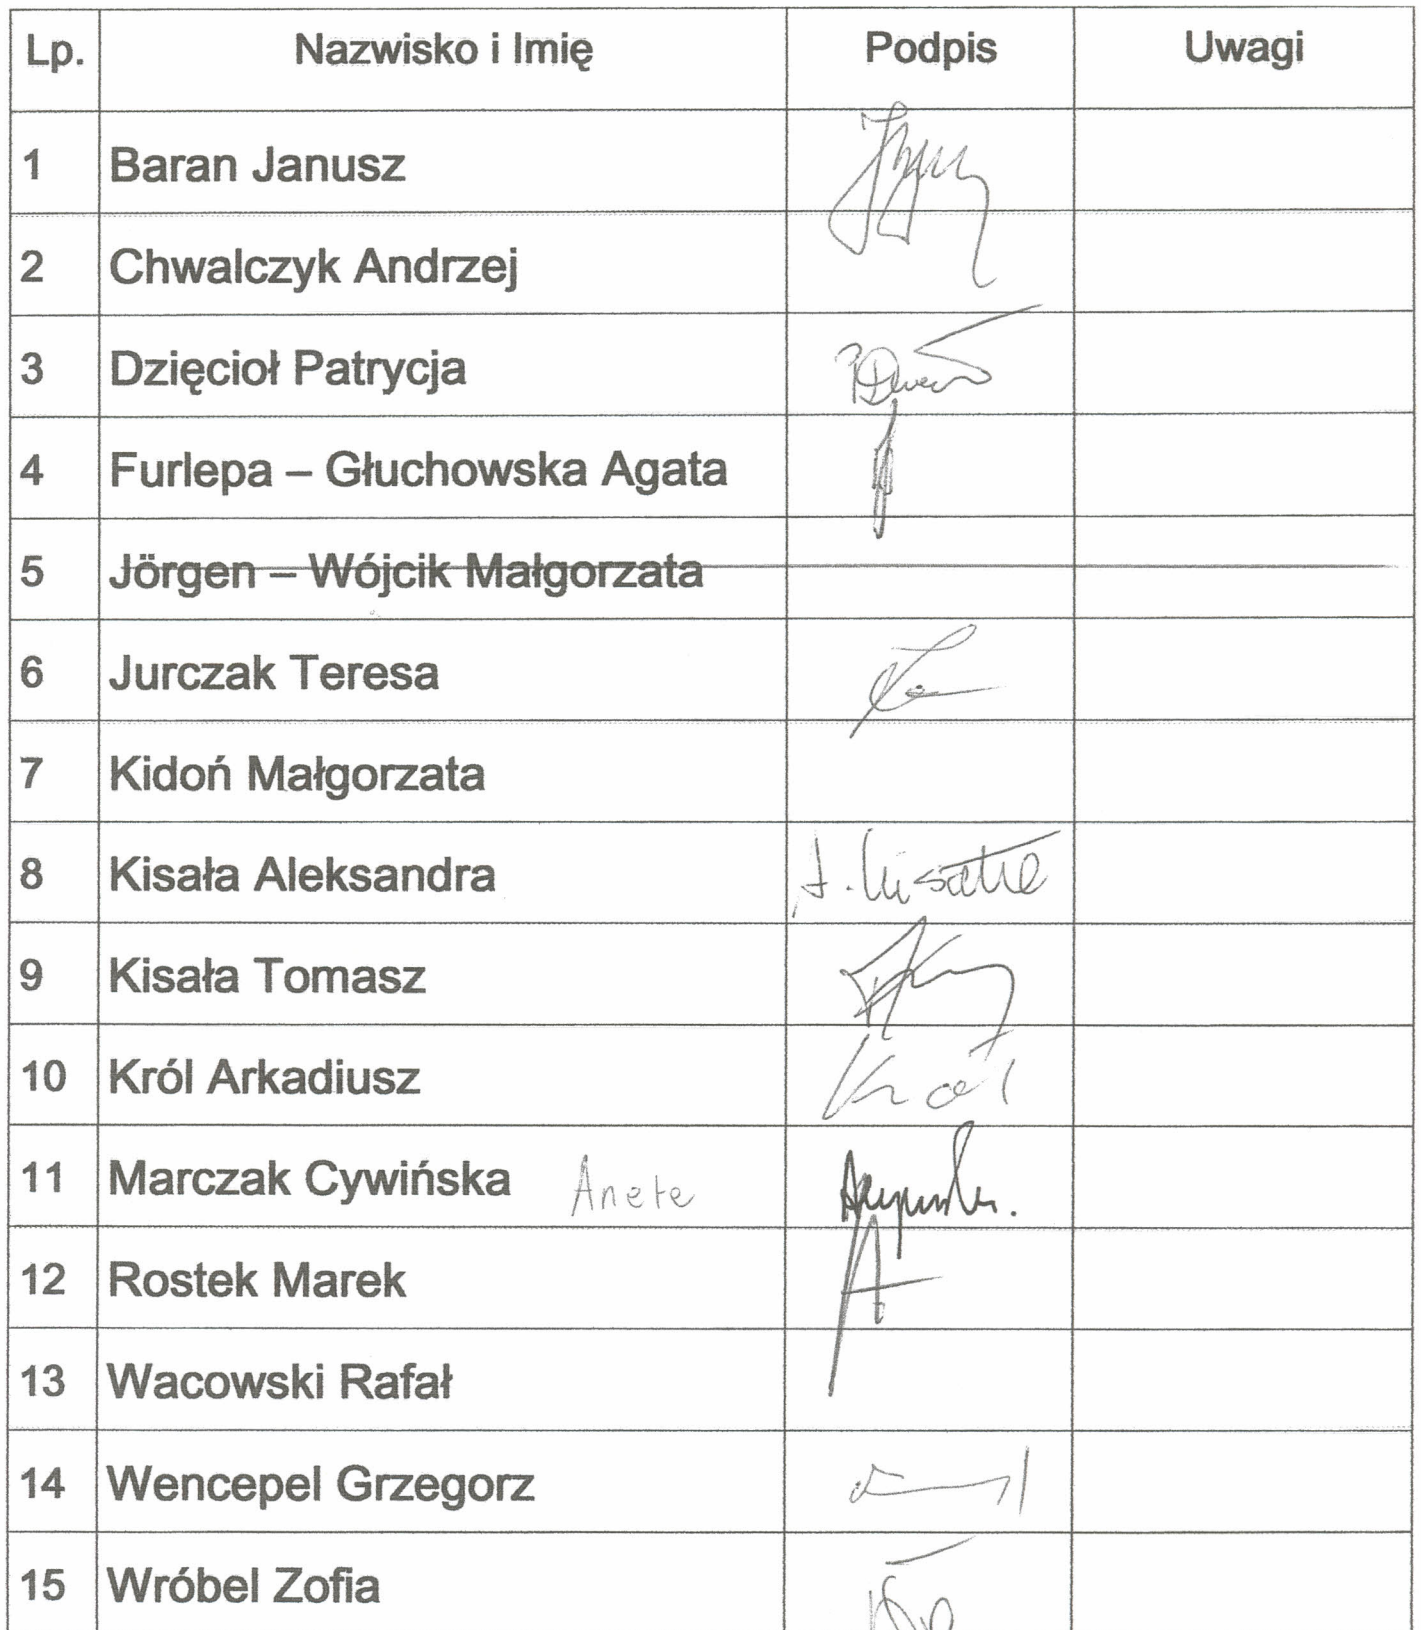 Lp. Nazwisko i Imię Podpis Uwagi
1 Baran Janusz
2 Chwalczyk Andrzej
3 Dzięcioł Patrycja
4 Furlepa – Głuchowska Agata
5 Jörgen – Wójcik Małgorzata
6 Jurczak Teresa
7 Kidoń Małgorzata
8 Kisała Aleksandra A. Kisała
9 Kisała Tomasz
10 Król Arkadiusz Król
11 Marczak Cywińska Aneta
12 Rostek Marek
13 Wacowski Rafał
14 Wencepel Grzegorz
15 Wróbel Zofia